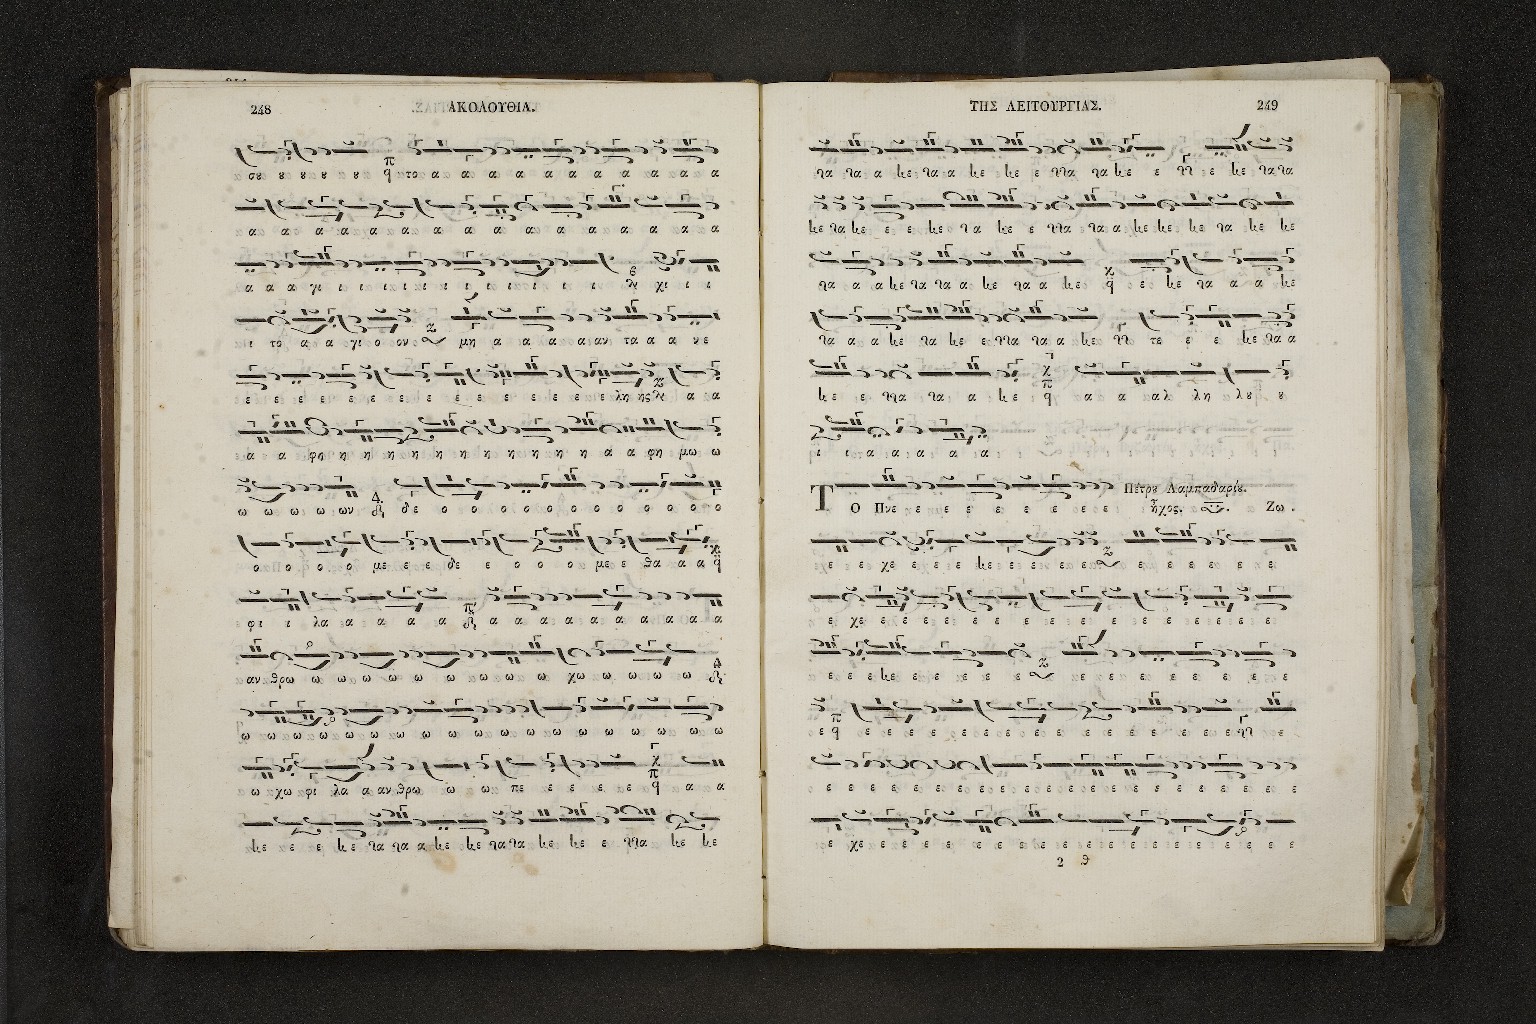 248 ΑΚΟΛΟΥΘΙΑ.
σȣ ȣ ȣ ȣ ȣ ȣ το α α α α α α α α α α α α
α α α α α α α α α α α α α α α α α
α α α γι ι ι ι ι ι ι ι ι ι ι ι χι ι ι
ι το α α γι ο ον μη α α α α α αν τα α α νε
ε ε ε ε ε ε ε ε ε ε ε ε ε ε ε λη ης α α
α α φη η η η η η η η η η η η α α φη μω ω
ω ω ω ω ων δε ο ο ο ο ο ο ο ο ο ο ο ο
ο ο ο ο με ε δε ε ο ο ο με ε θα α α
φι ι λα α α α α α α α α α α α α α α
αν θρω ω ω ω ω ω ω ω ω ω ω χω ω ω ω ω
ω ω ω ω ω ω ω ω ω ω ω ω ω ω ω ω ω ω ω
ω χω φι λα α αν θρω ω ω πε ε ε ε ε α α
κε ε ε κε τα τα α κε κε τα τα κε κε ε ττα κε κε
ΤΗΣ ΛΕΙΤΟΥΡΓΙΑΣ. 249
τα τα α κε τα α κε κε ε ττα τα κε ε ε κε τα τα
κε τα κε ε ε κε τα κε ε ττα τα α κε κε κε τα κε κε
τα α α κε τα τα α κε τα α κε ε κε τα α α κε
τα α α κε τα κε ε ττα τα α κε τε ε ε κε τα α
κε ε ττα τα α κε α α αλ λη λȣ ȣ
ι ι α α α α α
Πέτρȣ Λαμπαδαρίȣ.
ΤΟ Πνε ε ε ε ε ε ε ε ε ἦχος. Ζω.
ε ε χε ε ε ε κε ε ε ε ε ε ε ε ε ε ε ε
ε χε ε ε ε ε ε ε ε ε ε ε ε ε ε ε ε
ε ε ε κε ε ε ε ε ε ε ε ε ε ε ε ε ε
ε ε ε ε ε ε ε ε ε ε ε ε ε ε ε ε ε ε ε ε
ε ε ε ε ε ε ε ε ε ε ε ε ε ε ε ε ε ε ε ε
ε χε ε ε ε ε ε ε ε ε ε ε ε ε ε ε ε ε ε
2 θ